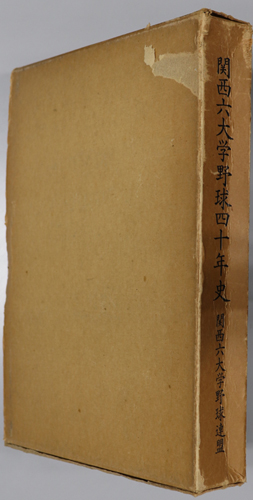 関西六大学野球四十年史
関西六大学野球連盟